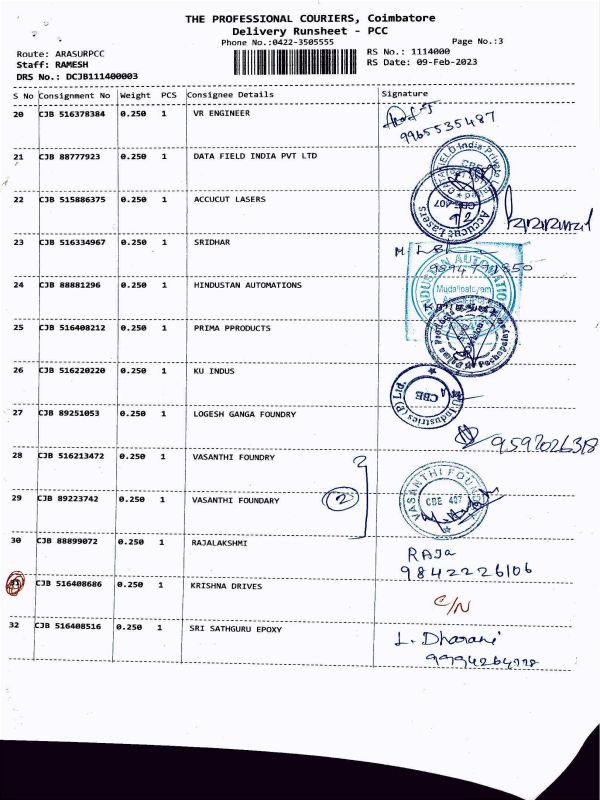 THE PROFESSIONAL COURIERS, Coimbatore
Delivery Runsheet - PCC
Phone No.:0422-3505555 Page No.:3
Route: ARASURPCC RS No.: 1114000
Staff: RAMESH RS Date: 09-Feb-2023
DRS No.: DCJB111400003
S No Consignment No Weight PCS Consignee Details Signature
20 CJB 516378384 0.250 1 VR ENGINEER
9965535487
21 CJB 88777923 0.250 1 DATA FIELD INDIA PVT LTD
22 CJB 515886375 0.250 1 ACCUCUT LASERS
Accucut Lasers
CBE-407
23 CJB 516334967 0.250 1 SRIDHAR
24 CJB 88881296 0.250 1 HINDUSTAN AUTOMATIONS
HINDUSTAN AUTOMATION
25 CJB 516408212 0.250 1 PRIMA PPRODUCTS
26 CJB 516220220 0.250 1 KU INDUS
CBE
27 CJB 89251053 0.250 1 LOGESH GANGA FOUNDRY
9597026318
28 CJB 516213472 0.250 1 VASANTHI FOUNDRY
29 CJB 89223742 0.250 1 VASANTHI FOUNDARY 2
CBE 407
30 CJB 88899072 0.250 1 RAJALAKSHMI
RAJa
9842226106
31 CJB 516408686 0.250 1 KRISHNA DRIVES
C/N
32 CJB 516408516 0.250 1 SRI SATHGURU EPOXY
L. Dharani